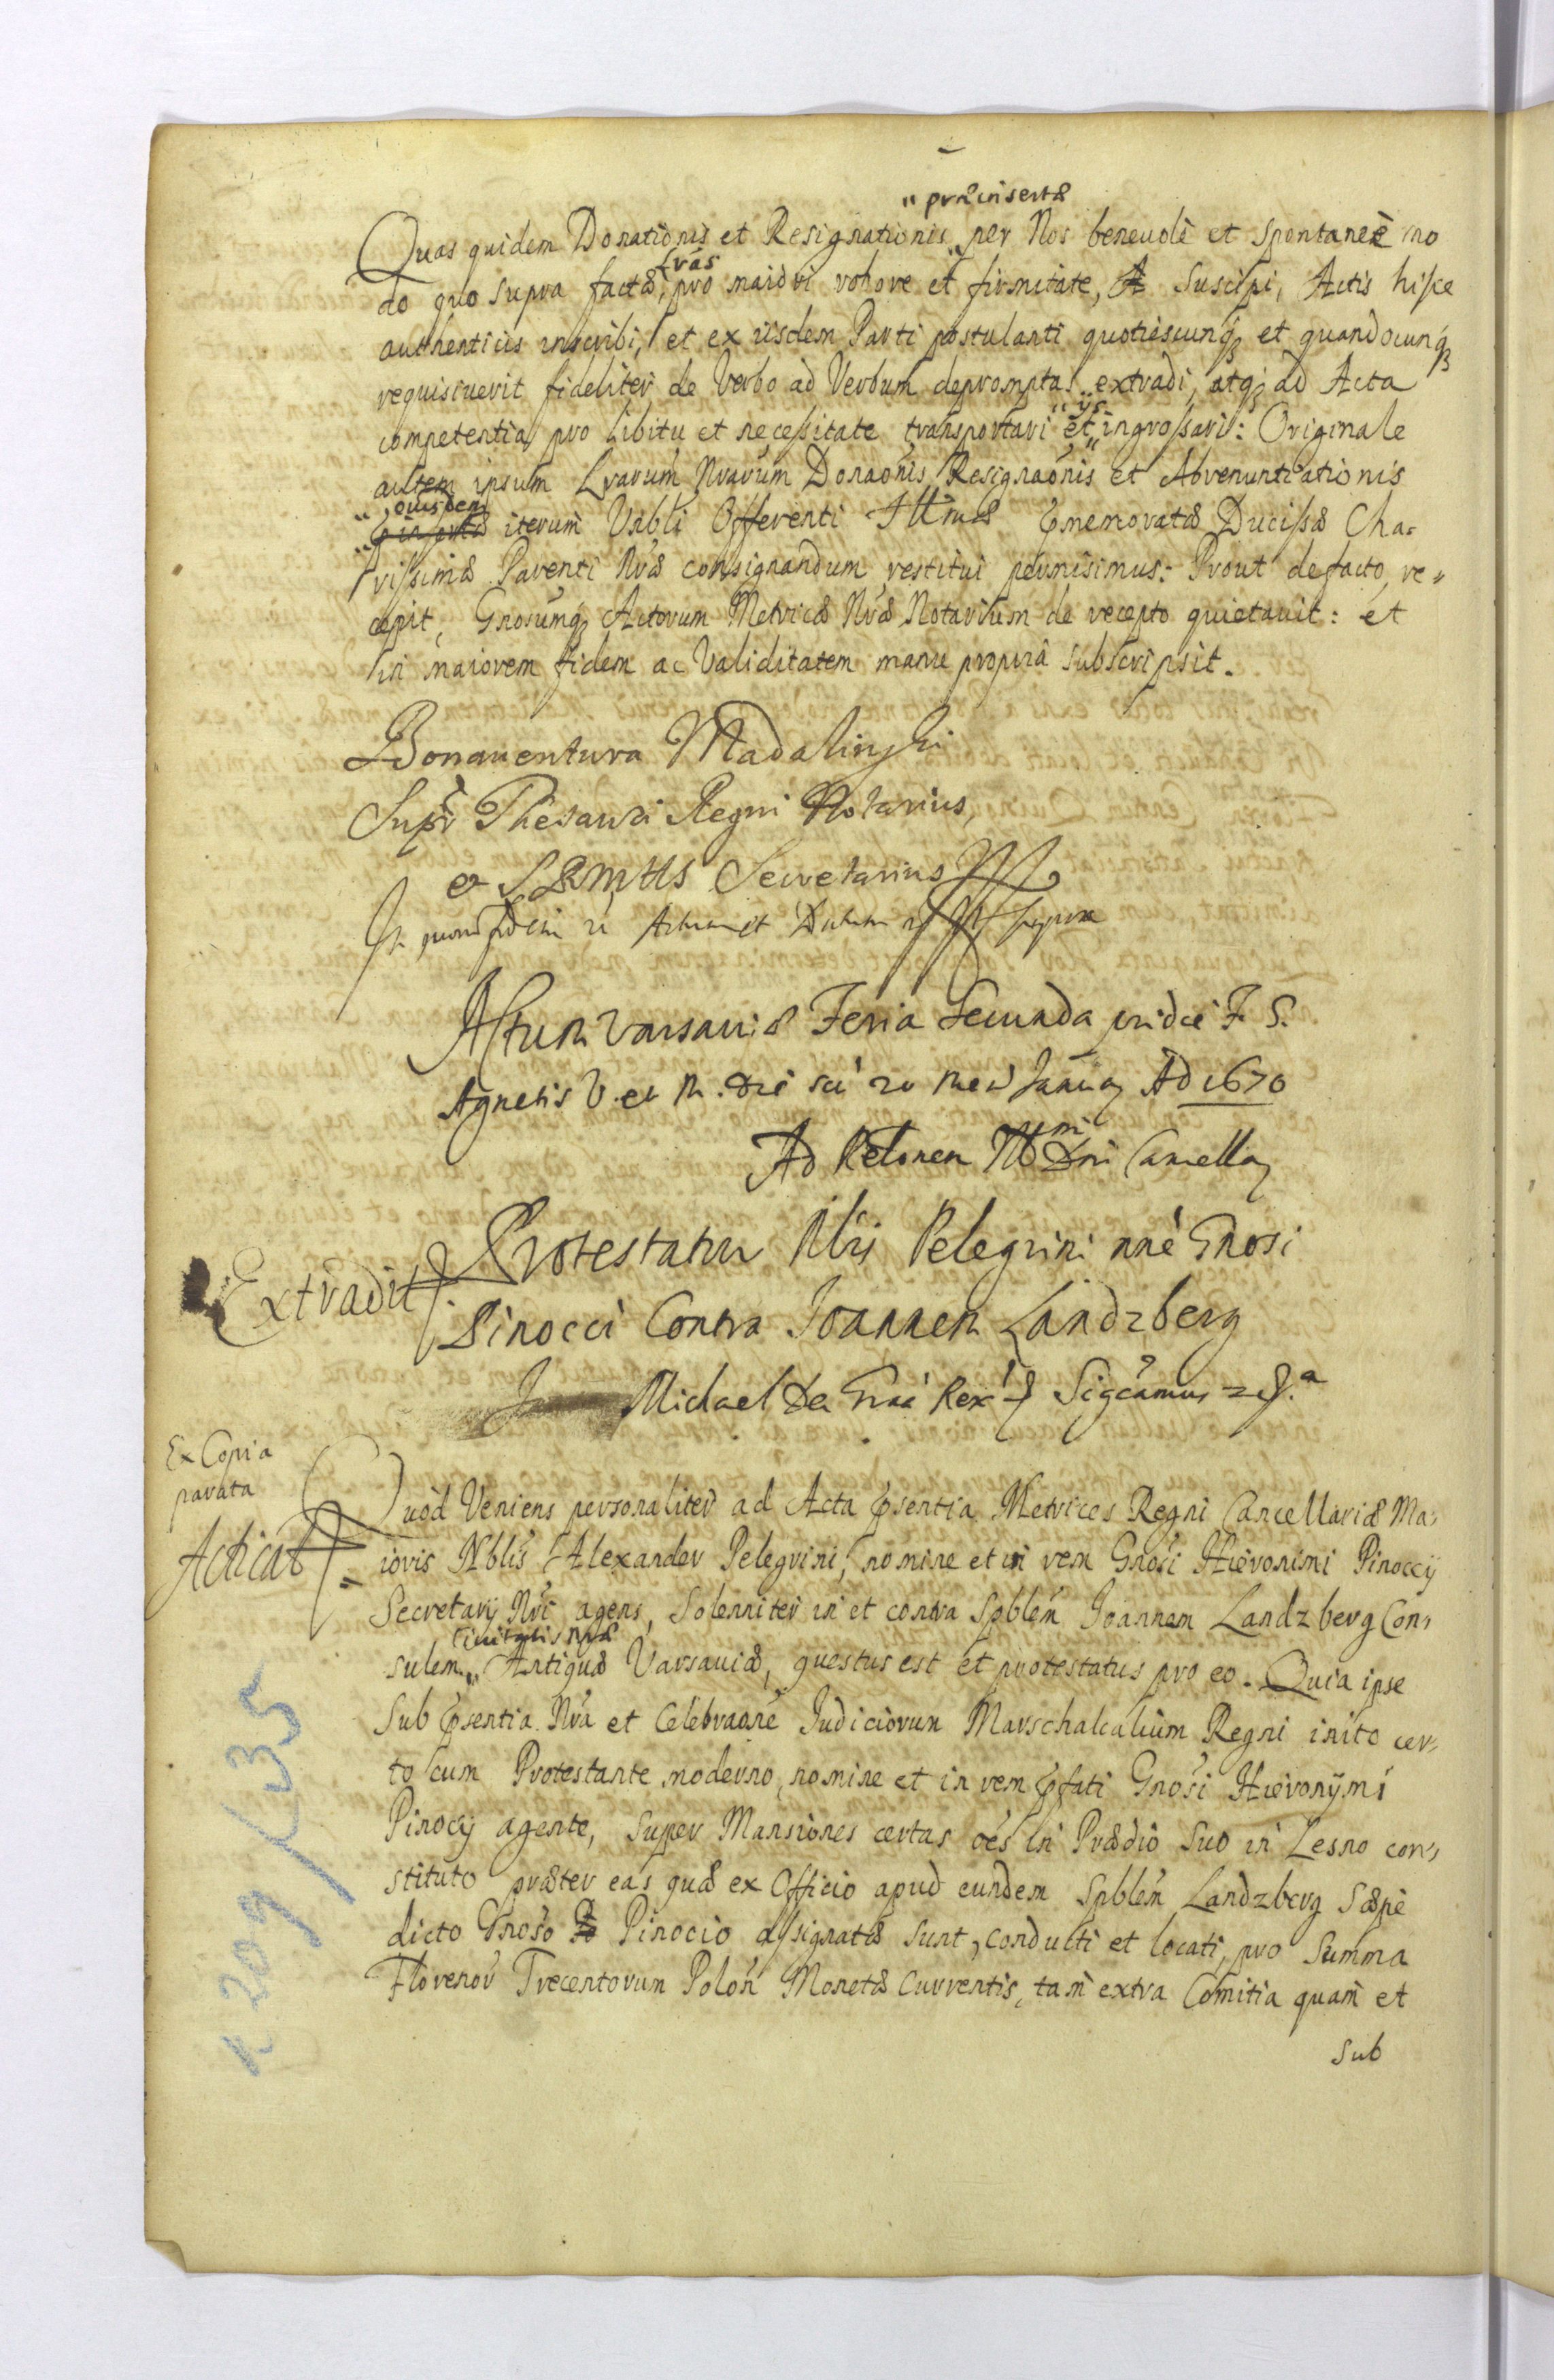 " præinsertæ
Quas quidem Donationis et Resignationis " per Nos beneuolè et Spontaneè mo
Lrás
do quo supra factæ, pro maiori robore et firmitate, Suscipi, Actis hisce
authenticis inscribi, et ex iisdem Parti postulanti quotiescunq; et quandocunq;
requisiuerit fideliter de Verbo ad Verbum depromptas extradi, atq; ad Acta
" ijs
competentia pro libitu et necessitate transportari et " ingrossari: Originale
autem ipsum Lrarum Nrarum Donaonis Resignaonis et Abrenuntiationis
" eiusdem
iterum Vnbli Offerenti Illmæ Pmemoratæ Ducissæ Cha-
rissimæ Parenti Nræ consignandum restitui permisimus: Prout de facto re"
cepit, Gnosumq; Actorum Metricæ Nræ Notarium de recepto quietauit: et
in maiorem fidem ac Validitatem manu propria subscripsit.
Bonauentura Madalinski
Supr Thesauri Regni Notarius,
et SRMttis Secretarius
In quorum fidem Actum et Datum ut supra
Actum Varsauiæ Feria Secunda pridie F. S.
Agnetis V. et M. die sci 20 mens Januarij AD 1670
Ad Relonem Illmi Dni Cancellarij
Extradit
Protestatur Nblis Pelegrini nne Gnosi
Pinocci Contra Joannem Landzberg
Michael Dei Graa Rex Sigcamus
Ex Copia
parata
Acticat
Quod Veniens personaliter ad Acta Psentia Metrices Regni Cancellariæ Ma-
ioris Nblis Alexander Pelegrini, nomine et in rem Gnosi Hieronimi Pinoccij
Secretarij Nri agens, Solenniter in et contra Spblem Joannem Landzberg Con-
Ciuitatis Nræ
sulem " Antiquæ Varsauiæ, questus est et protestatus pro eo. Quia ipse
Sub Psentia Nra et Celebraone Judiciorum Marschalcalium Regni inito cer-
to cum Protestante moderno, nomine et in rem Pfati Gnosi Hieronymi
Pinocij agente, Super Mansiones certas oes in Prædio Suo in Lesno con-
stituto præter eas quæ ex Officio apud eundem Spblem Landzberg Sæpè
dicto Gnoso Pinocio assignatæ sunt, conducti et locati, pro Summa
Florenor Trecentorum Polon Monetæ Currentis, tam extra Comitia quam et
Sub
k 209/35